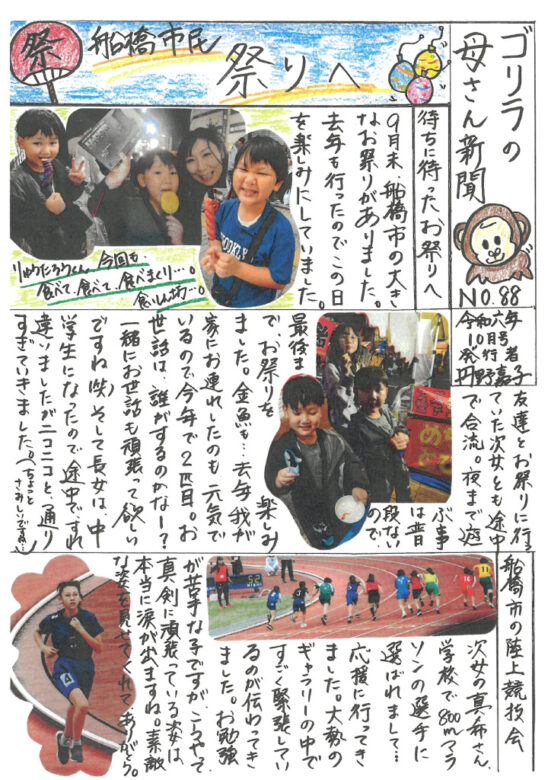 祭
船橋市民
祭りへ
ゴリラの
母さん新聞
NO.88
令和六年
10月号
発行者
丹野嘉子
待ちに待ったお祭りへ
9月末、船橋市の大き
なお祭りがありました。
去年も行ったのでこの日
を楽しみにしていました。
りゅうたろうくん 今回も…
食べて、食べて、食べまくり…。
食いしん坊…。
友達とお祭りに行っ
ていた次女とも途中
で合流。夜まで遊
ぶ事
は普
段ない
ので
楽しみ
最後ま
で、お祭りを
ました。金魚も…去年我が
家にお連れしたのも元気で
いるので今年で2匹目。お
世話は、誰がするのかなー?
一緒にお世話も頑張って欲しい
ですね(笑)そして長女は、中
学生になったので途中ですれ
違いましたがニコニコと、通り
すぎていきました。(ちょっと
さみしいです…)
船橋市の陸上競技会
次女の真ノ希さん、
学校で800mマラ
ソンの選手に
選ばれまして…
応援に行ってき
ました。大勢の
ギャラリーの中で
すごく緊張してい
るのが伝わってき
ました。お勉強
が苦手な子ですが、こうやって
真剣に頑張っている姿は、
本当に涙が出ますね。素敵
な姿を見せてくれて、ありがとう。